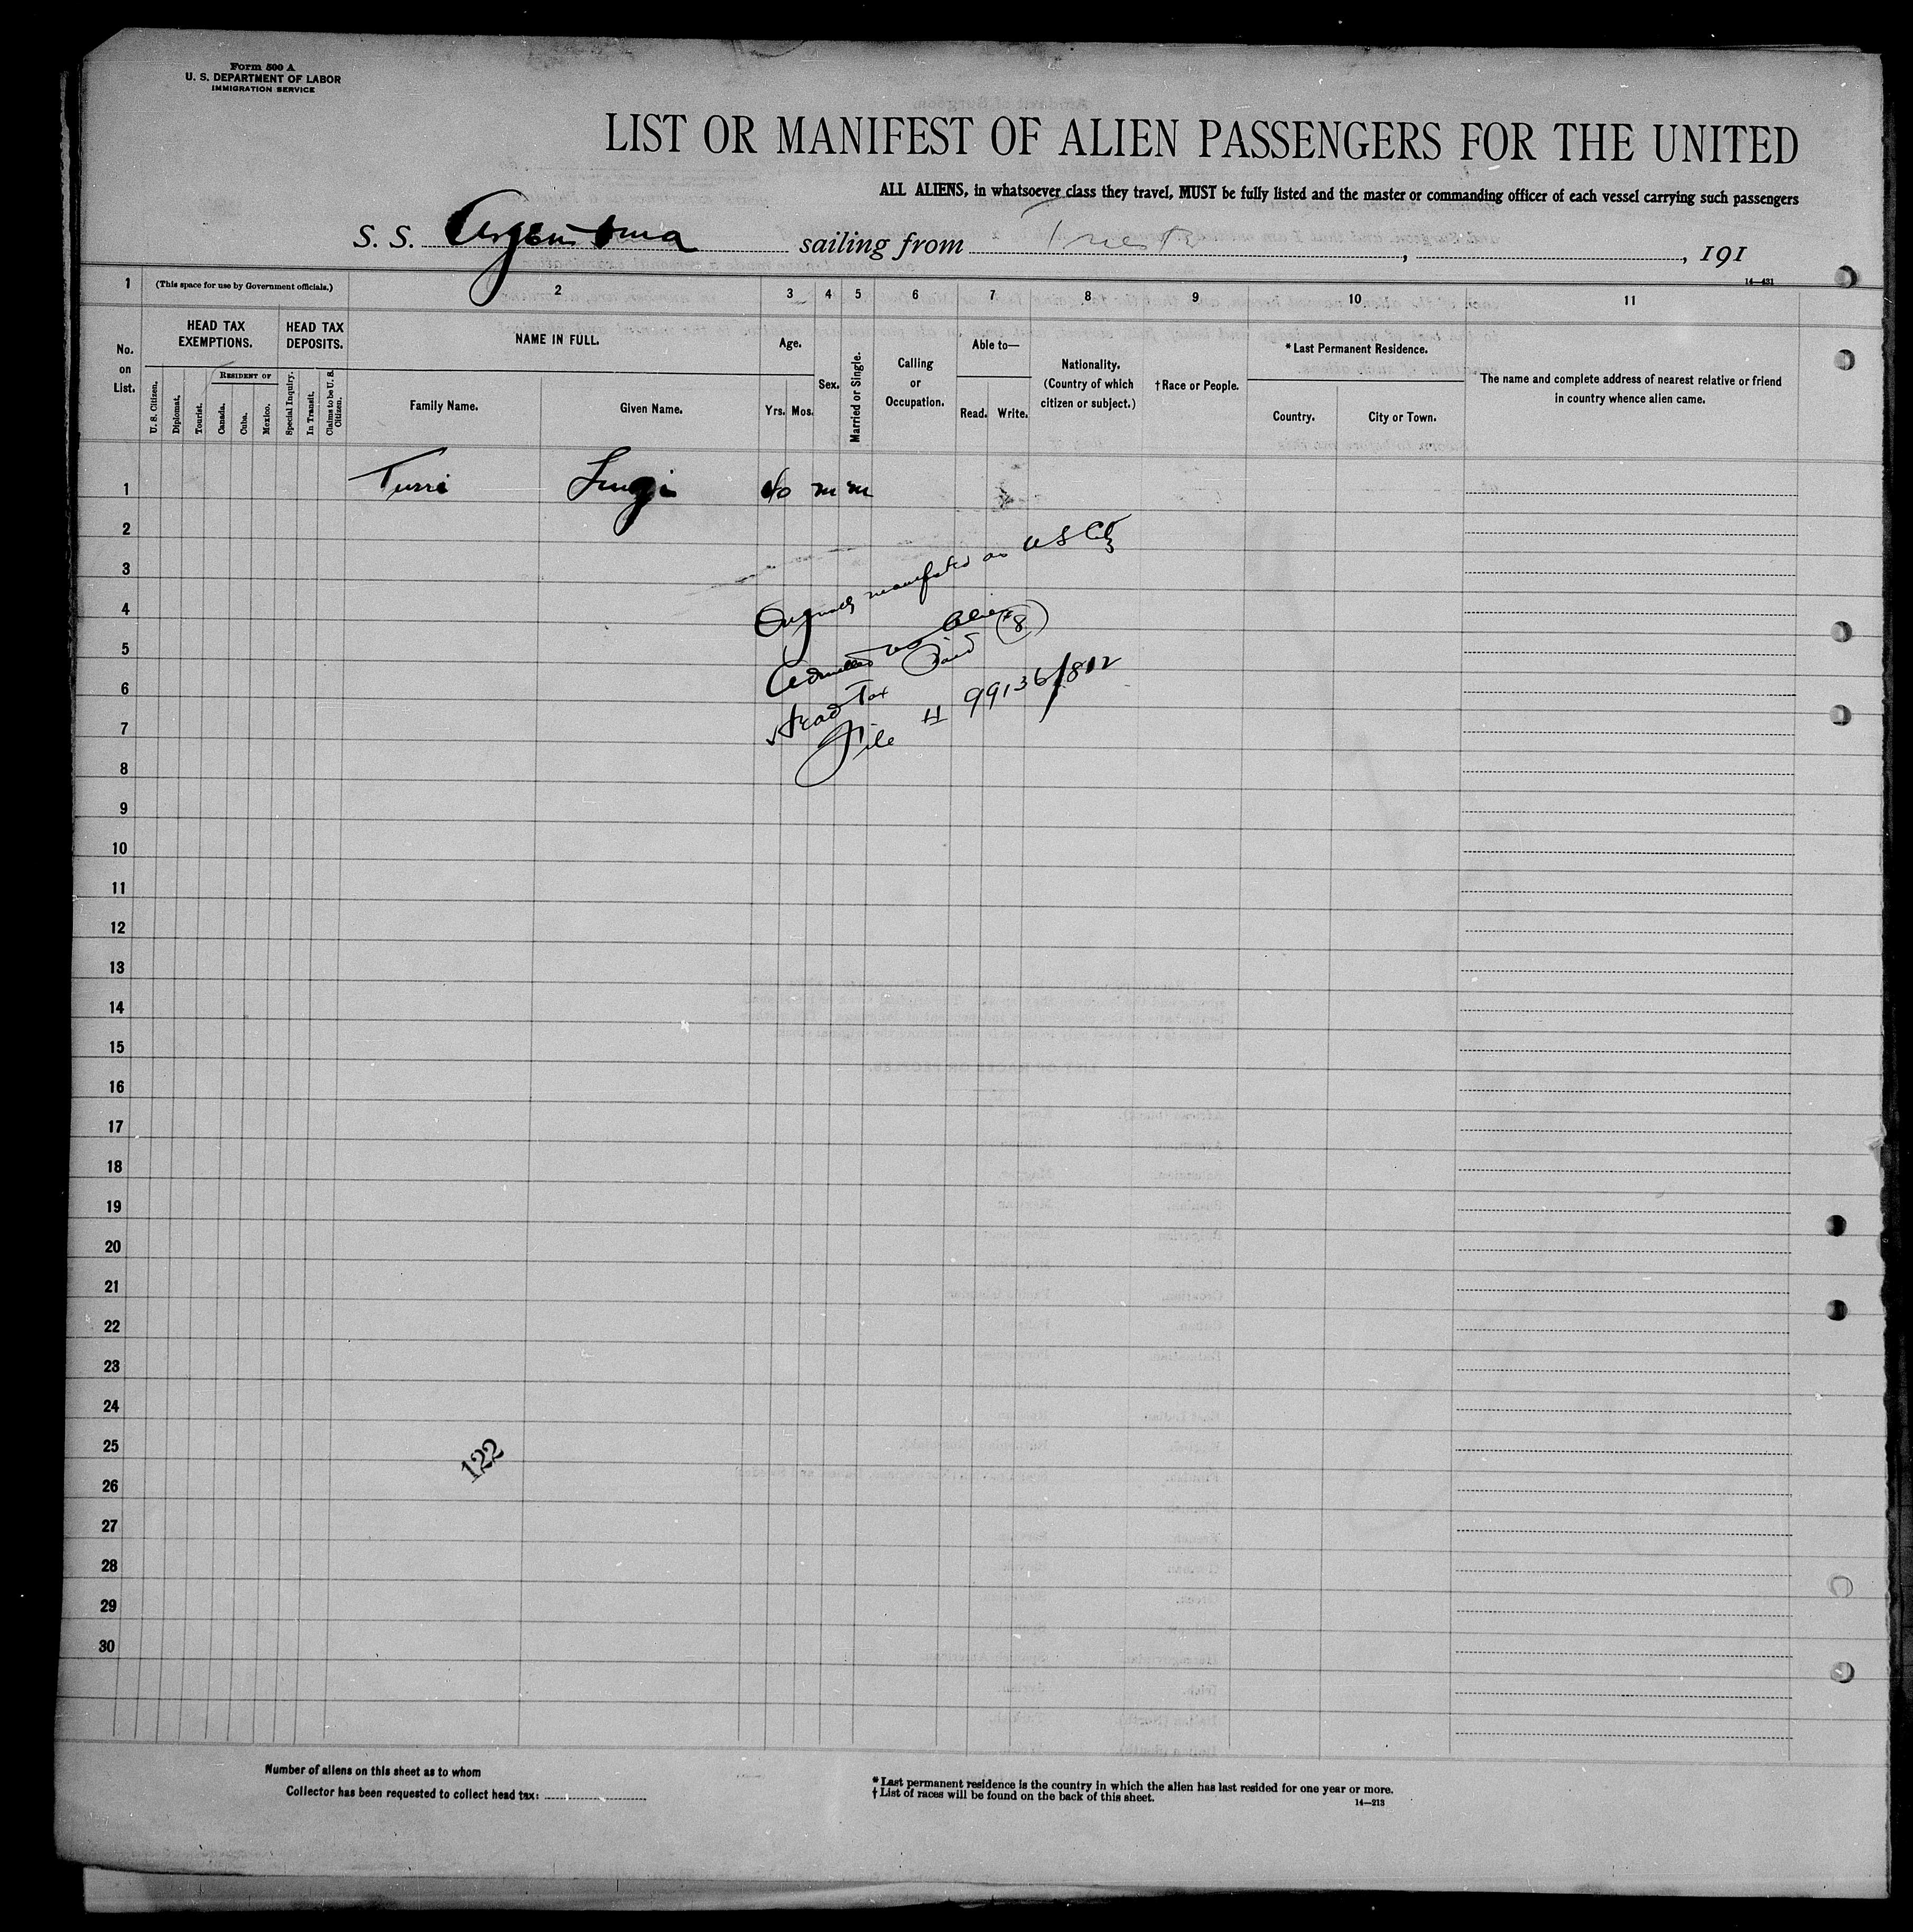 Form 500 A
U. S. DEPARTMENT OF LABOR
IMMIGRATION SERVICE
LIST OR MANIFEST OF ALIEN PASSENGERS FOR THE UNITED
ALL ALIENS, in whatsoever class they travel, MUST be fully listed and the master or commanding officer of each vessel carrying such passengers
S. S. Argentina sailing from Trieste, , 191
14—431
1 (This space for use by Government officials.) 2 3 4 5 6 7 8 9 10 11
No. on List.
HEAD TAX EXEMPTIONS.
HEAD TAX DEPOSITS.
U. S. Citizen.
Diplomat.
Tourist.
RESIDENT OF
Canada.
Cuba.
Mexico.
Special Inquiry.
In Transit.
Claims to be U. S. Citizen.
NAME IN FULL.
Family Name.
Given Name.
Age.
Yrs. Mos.
Sex.
Married or Single.
Calling or Occupation.
Able to—
Read. Write.
Nationality.
(Country of which
citizen or subject.)
†Race or People.
*Last Permanent Residence.
Country. City or Town.
The name and complete address of nearest relative or friend
in country whence alien came.
1 Turri Luigi 40 m m
2
3
4
5
6
7
8
9
10
11
12
13
14
15
16
17
18
19
20
21
22
23
24
25
26
27
28
29
30
Originally manifested as U S Citz
Admitted as Alien
Head Tax Paid (8)
File # 99136/812
122
Number of aliens on this sheet as to whom
Collector has been requested to collect head tax:
* Last permanent residence is the country in which the alien has last resided for one year or more.
† List of races will be found on the back of this sheet.
14—213